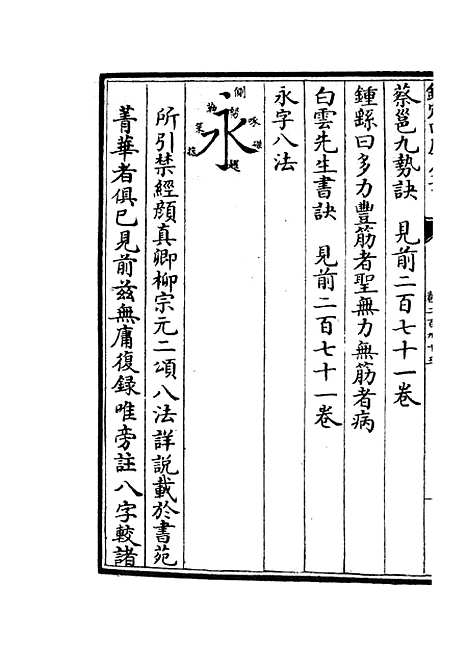 蔡邕九勢訣　見前二百七十一卷
鍾繇曰多力豐筋者聖無力無筋者病
白雲先生書訣　見前二百七十一卷
永字八法
永
側
勒
努
趯
策
掠
啄
磔
所引禁經顔真卿柳宗元二頌八法詳説載於書苑
菁華者俱已見前兹無庸復録唯旁註八字較諸